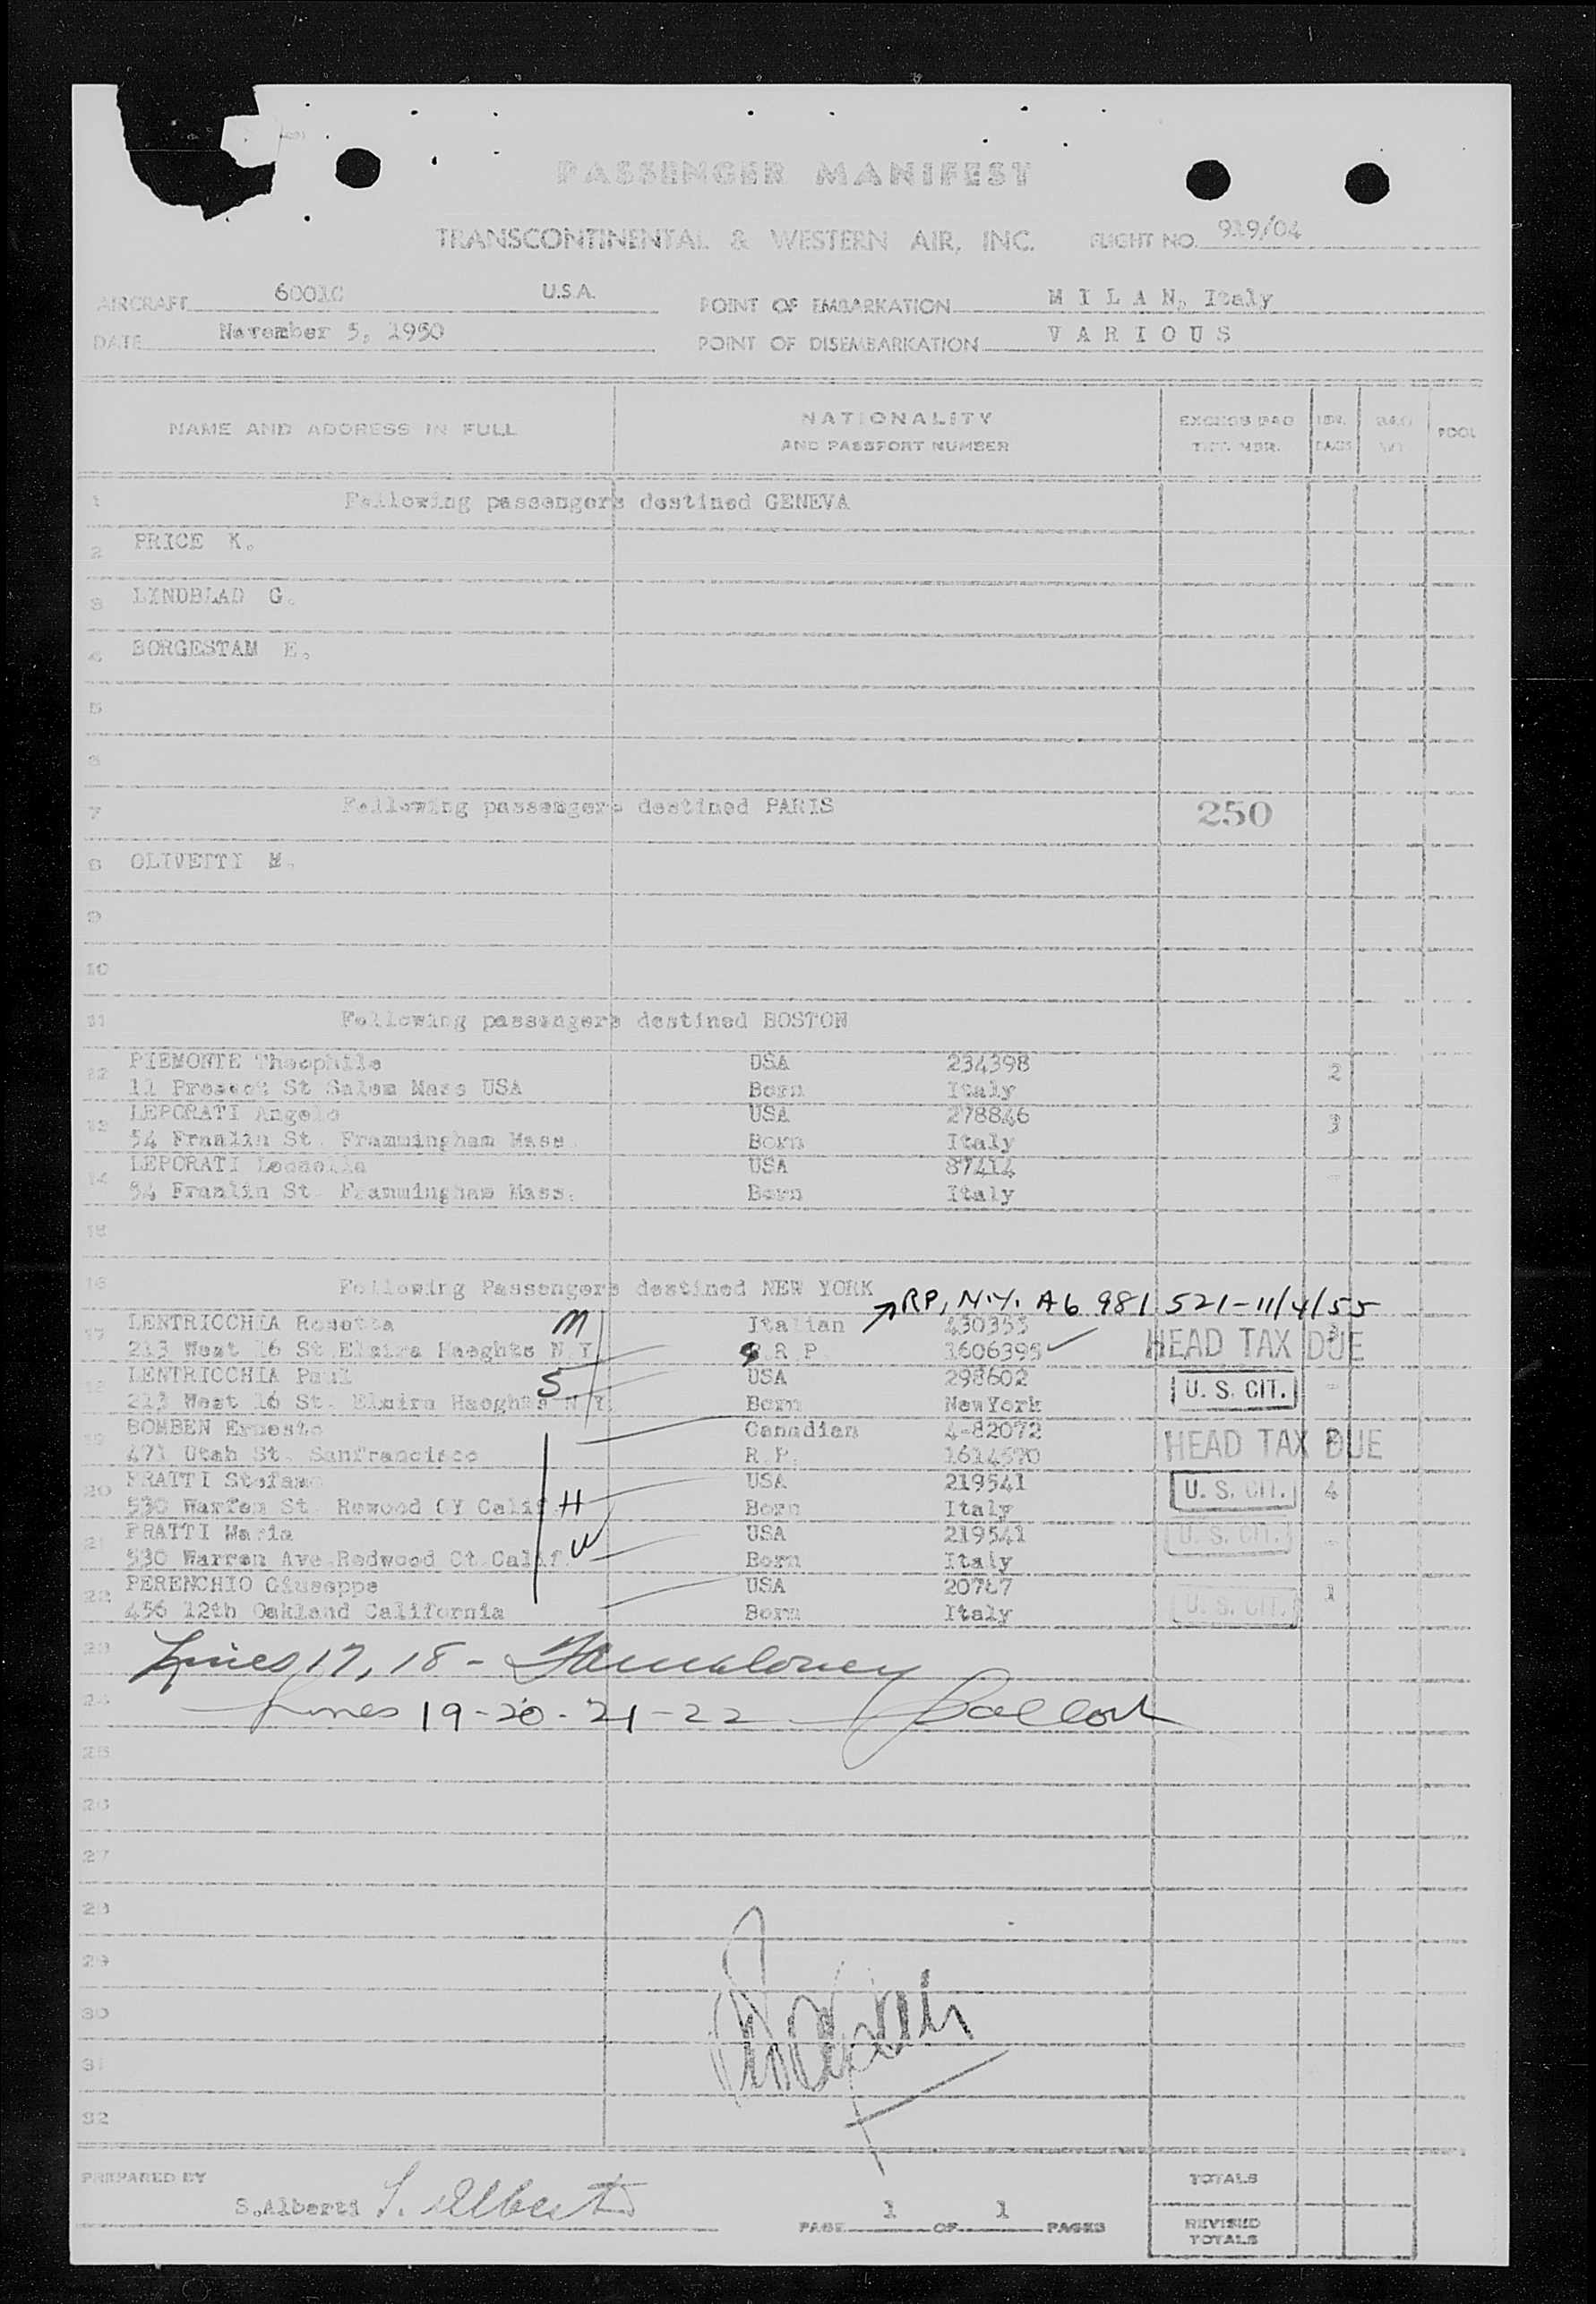 PASSENGER MANIFEST
TRANSCONTINENTAL & WESTERN AIR, INC. FLIGHT NO. 919/04
AIRCRAFT 6001C U.S.A. POINT OF EMBARKATION M I L A N, Italy
DATE November 5, 1950 POINT OF DISEMBARKATION V A R I O U S
NAME AND ADDRESS IN FULL NATIONALITY AND PASSPORT NUMBER EXCESS BAG TKT. NBR. NBR. BAGS BAG WT. POOL
1 Following passengers destined GENEVA
2 PRICE K.
3 LINDBLAD G.
4 BORGESTAM E.
5
6
7 Following passengers destined PARIS 250
8 OLIVETTI M.
9
10
11 Following passengers destined BOSTON
12 PIEMONTE Theophile USA 234398 2
11 Prescot St Salem Mass USA Born Italy
13 LEPORATI Angelo USA 278846 3
54 Franlin St. Frammingham Mass. Born Italy
14 LEPORATI USA 87414 -
54 Franlin St. Frammingham Mass. Born Italy
15
16 Following Passengers destined NEW YORK
RP, N.Y. A6 981 521-11/4/55
17 LENTRICCHIA Rosetta M Italian 430353 3
213 West 16 St Elmira Haeghts N.Y. R.P. 1606395 HEAD TAX DUE
18 LENTRICCHIA Paul S USA 298602 -
213 West 16 St. Elmira Haeghts N Y. Born NewYork U. S. CIT.
19 BOMBEN Ernesto Canadian 4-82072
471 Utah St. Sanfrancisco R.P. 1614570 HEAD TAX DUE
20 PRATTI Stefano USA 219541 4
530 Warren St. Rewood CY Calif. H Born Italy U. S. CIT.
21 PRATTI Maria USA 219541 -
530 Warren Ave Redwood Ct Calif. W Born Italy U. S. CIT.
22 PERENCHIO Giuseppe USA 20787 1
456 12th Oakland California Born Italy U. S. CIT.
23 Lines 17, 18 -
24 Lines 19-20-21-22
25
26
27
28
29
30
31
32
PREPARED BY S.Alberti S. Alberti
PAGE 1 OF 1 PAGES
TOTALS
REVISED TOTALS